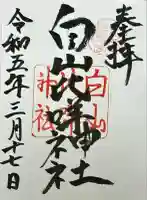 奉拝
白山比咩神社
白山
神社
令和五年三月十七日